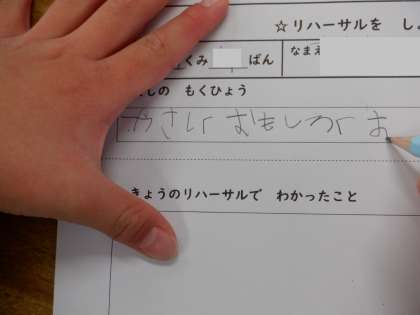 ☆リハーサルを し
くみ ばん なまえ
しの もくひょう
やさしく おもしろく お
きょうのリハーサルで わかったこと